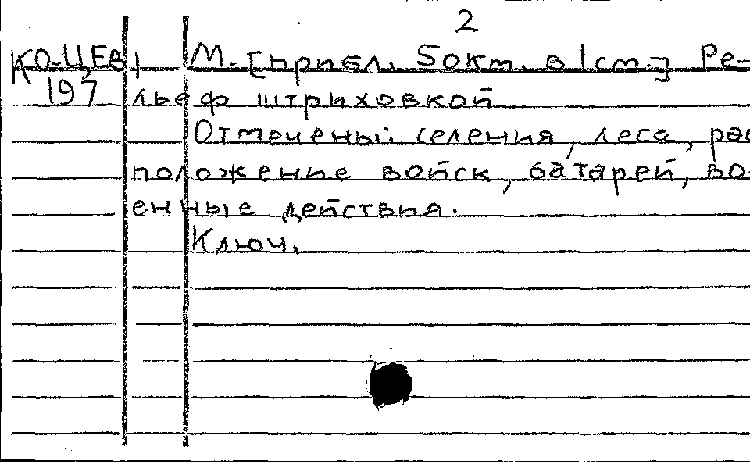 2
Ко-ЦЕВ М. [прибл. 50км. в 1см.] Ре-
197 льеф штриховкой
Отмечены: селения, леса, рас
положение войск, батарей, во-
енные действия.
Ключ.